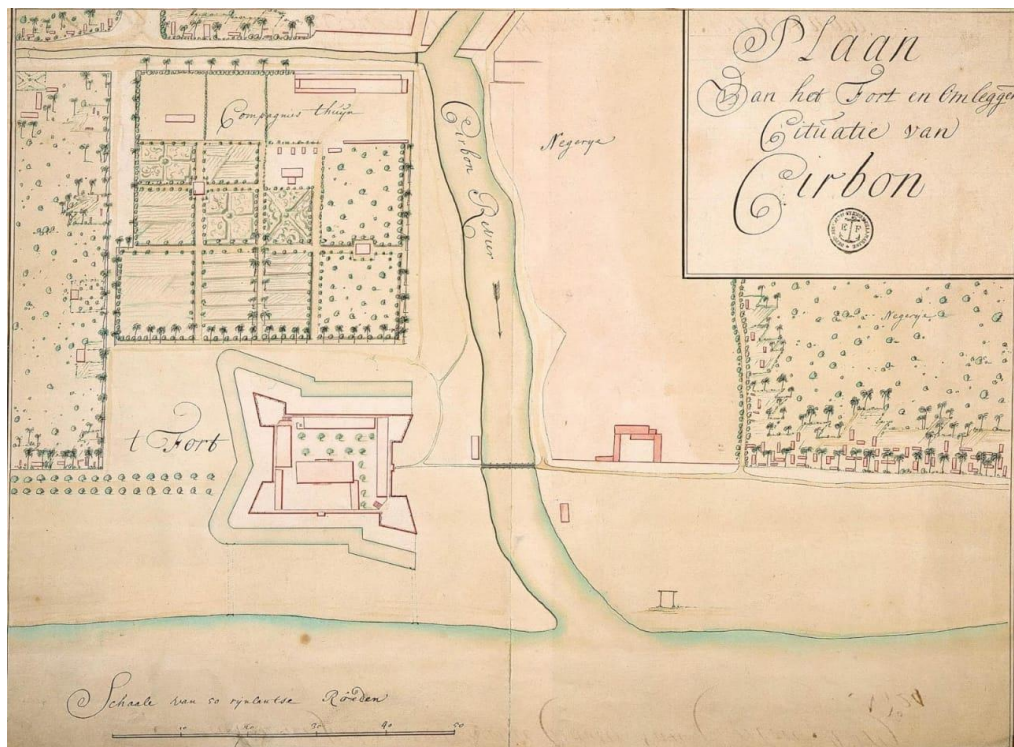 Plaan
Van het Fort en Omleggen
Cituatie van
Cirbon
E F
Compagnies thuijn
Cirbon Revier
Negerye
Negerye
t Fort
Schaale van 50 rynlantse Roeden
10 20 30 40 50